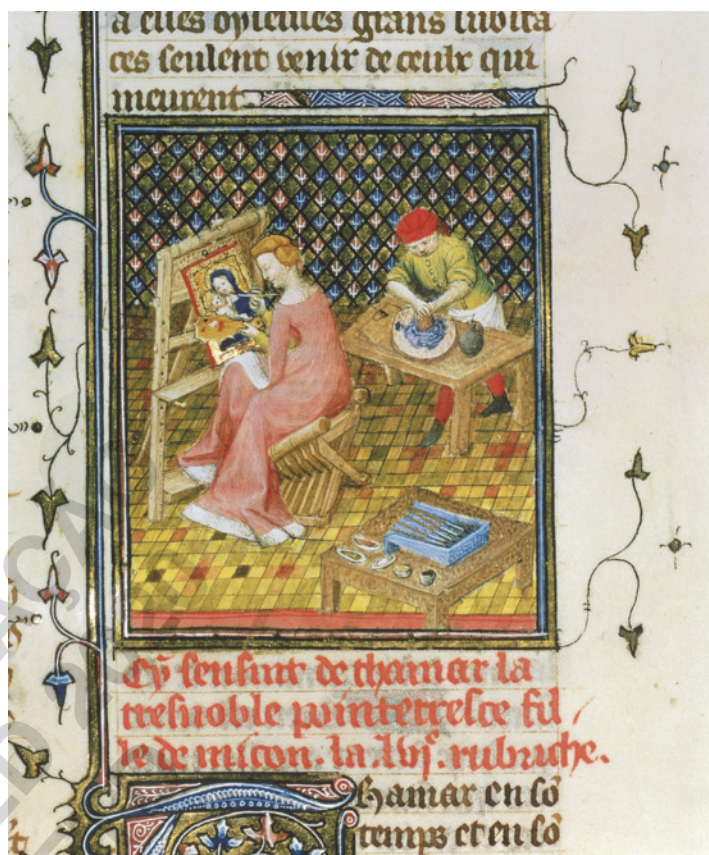 a elles dolentes grans habita
ces seulent venir de ceulx qui
meurent.
Cy sensuit de thamar la
tresnoble pointerresse fil
le de micon. la .lvjᵉ. rubriche.
hamar en sō
temps et en sō